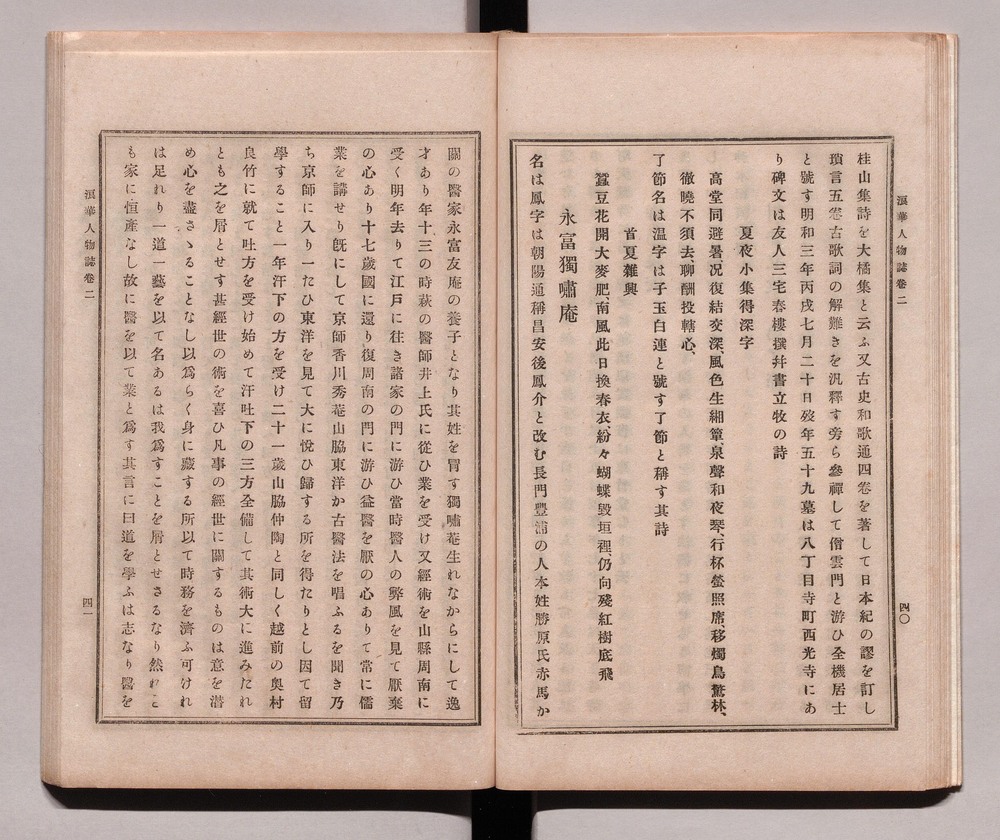 浪華人物誌卷二
四〇
桂山集詩を大橘集と云ふ又古史和歌通四卷を著して日本紀の謬を訂し
瑣言五卷古歌詞の解難きを汎釋す旁ら參禪して僧雲門と游ひ全機居士
と號す明和三年丙戌七月二十日歿年五十九墓は八丁目寺町西光寺にあ
り碑文は友人三宅春樓撰幷書立牧の詩
夏夜小集得深字
高堂同避暑、况復結交深、風色生緗簟、泉聲和夜琴、行杯螢照席、移燭鳥驚林、
徹曉不須去、聊酬投轄心、
了節名は温字は子玉白連と號す了節と稱す其詩
首夏雜興
蠶豆花開大麥肥、南風此日換春衣、紛々蝴蝶毀垣裡、仍向殘紅樹底飛
永富獨嘯庵
名は鳳字は朝陽通稱昌安後鳳介と改む長門豐浦の人本姓勝原氏赤馬か
關の醫家永富友庵の養子となり其姓を冒す獨嘯菴生れなからにして逸
才あり年十三の時萩の醫師井上氏に從ひ業を受け又經術を山縣周南に
受く明年去りて江戸に往き諸家の門に游ひ當時醫人の弊風を見て厭棄
の心あり十七歲國に還り復周南の門に游ひ益醫を厭の心ありて常に儒
業を講せり旣にして京師香川秀菴山脇東洋か古醫法を唱ふるを聞き乃
ち京師に入り一たひ東洋を見て大に悅ひ歸する所を得たりとし因て留
學すること一年汗下の方を受け二十一歲山脇仲陶と同しく越前の奧村
良竹に就て吐方を受け始めて汗吐下の三方全備して其術大に進みたれ
とも之を屑とせす甚經世の術を喜ひ凡事の經世に關するものは意を潛
め心を盡さゝることなし以爲らく身に藏する所以て時務を濟ふ可けれ
は足れり一道一藝を以て名あるは我爲すことを屑とせさるなり然れと
も家に恒產なし故に醫を以て業と爲す其言に曰道を學ふは志なり醫を
浪華人物誌卷二
四一